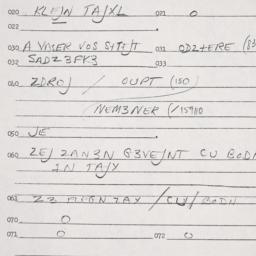 020 KLEJN TAJXL 021 0
022
030 A VASER VOS SITEJT 031 ODZ+ERE (
032 SADZ3FK3 033
040 ZDROJ / OUPT (ISO)
NEM3NER (/159110
050 JE
060 ZEJ ZAN3N G3VEJNT CU BODN
IN TAJX
061 / CU / BODN
070 0
071 0 072 0